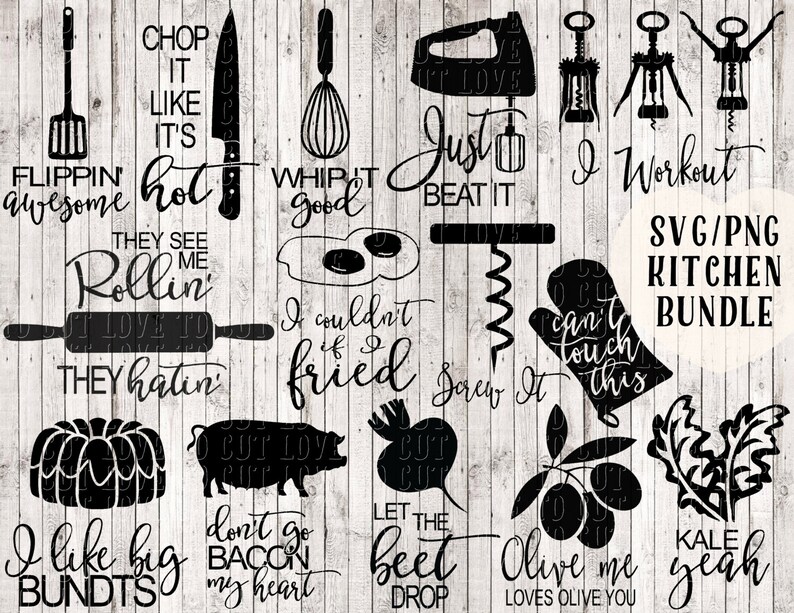 FLIPPIN'
awesome
CHOP
IT
LIKE
IT'S
hot
WHIP IT
good
Just
BEAT IT
I Workout
SVG/PNG
KITCHEN
BUNDLE
THEY SEE
ME
Rollin'
THEY hatin'
I couldn't
if I
fried
Screw It
can't
touch
this
I like big
BUNDTS
don't go
BACON
my heart
LET THE
beet
DROP
Olive me
LOVES OLIVE YOU
KALE
yeah